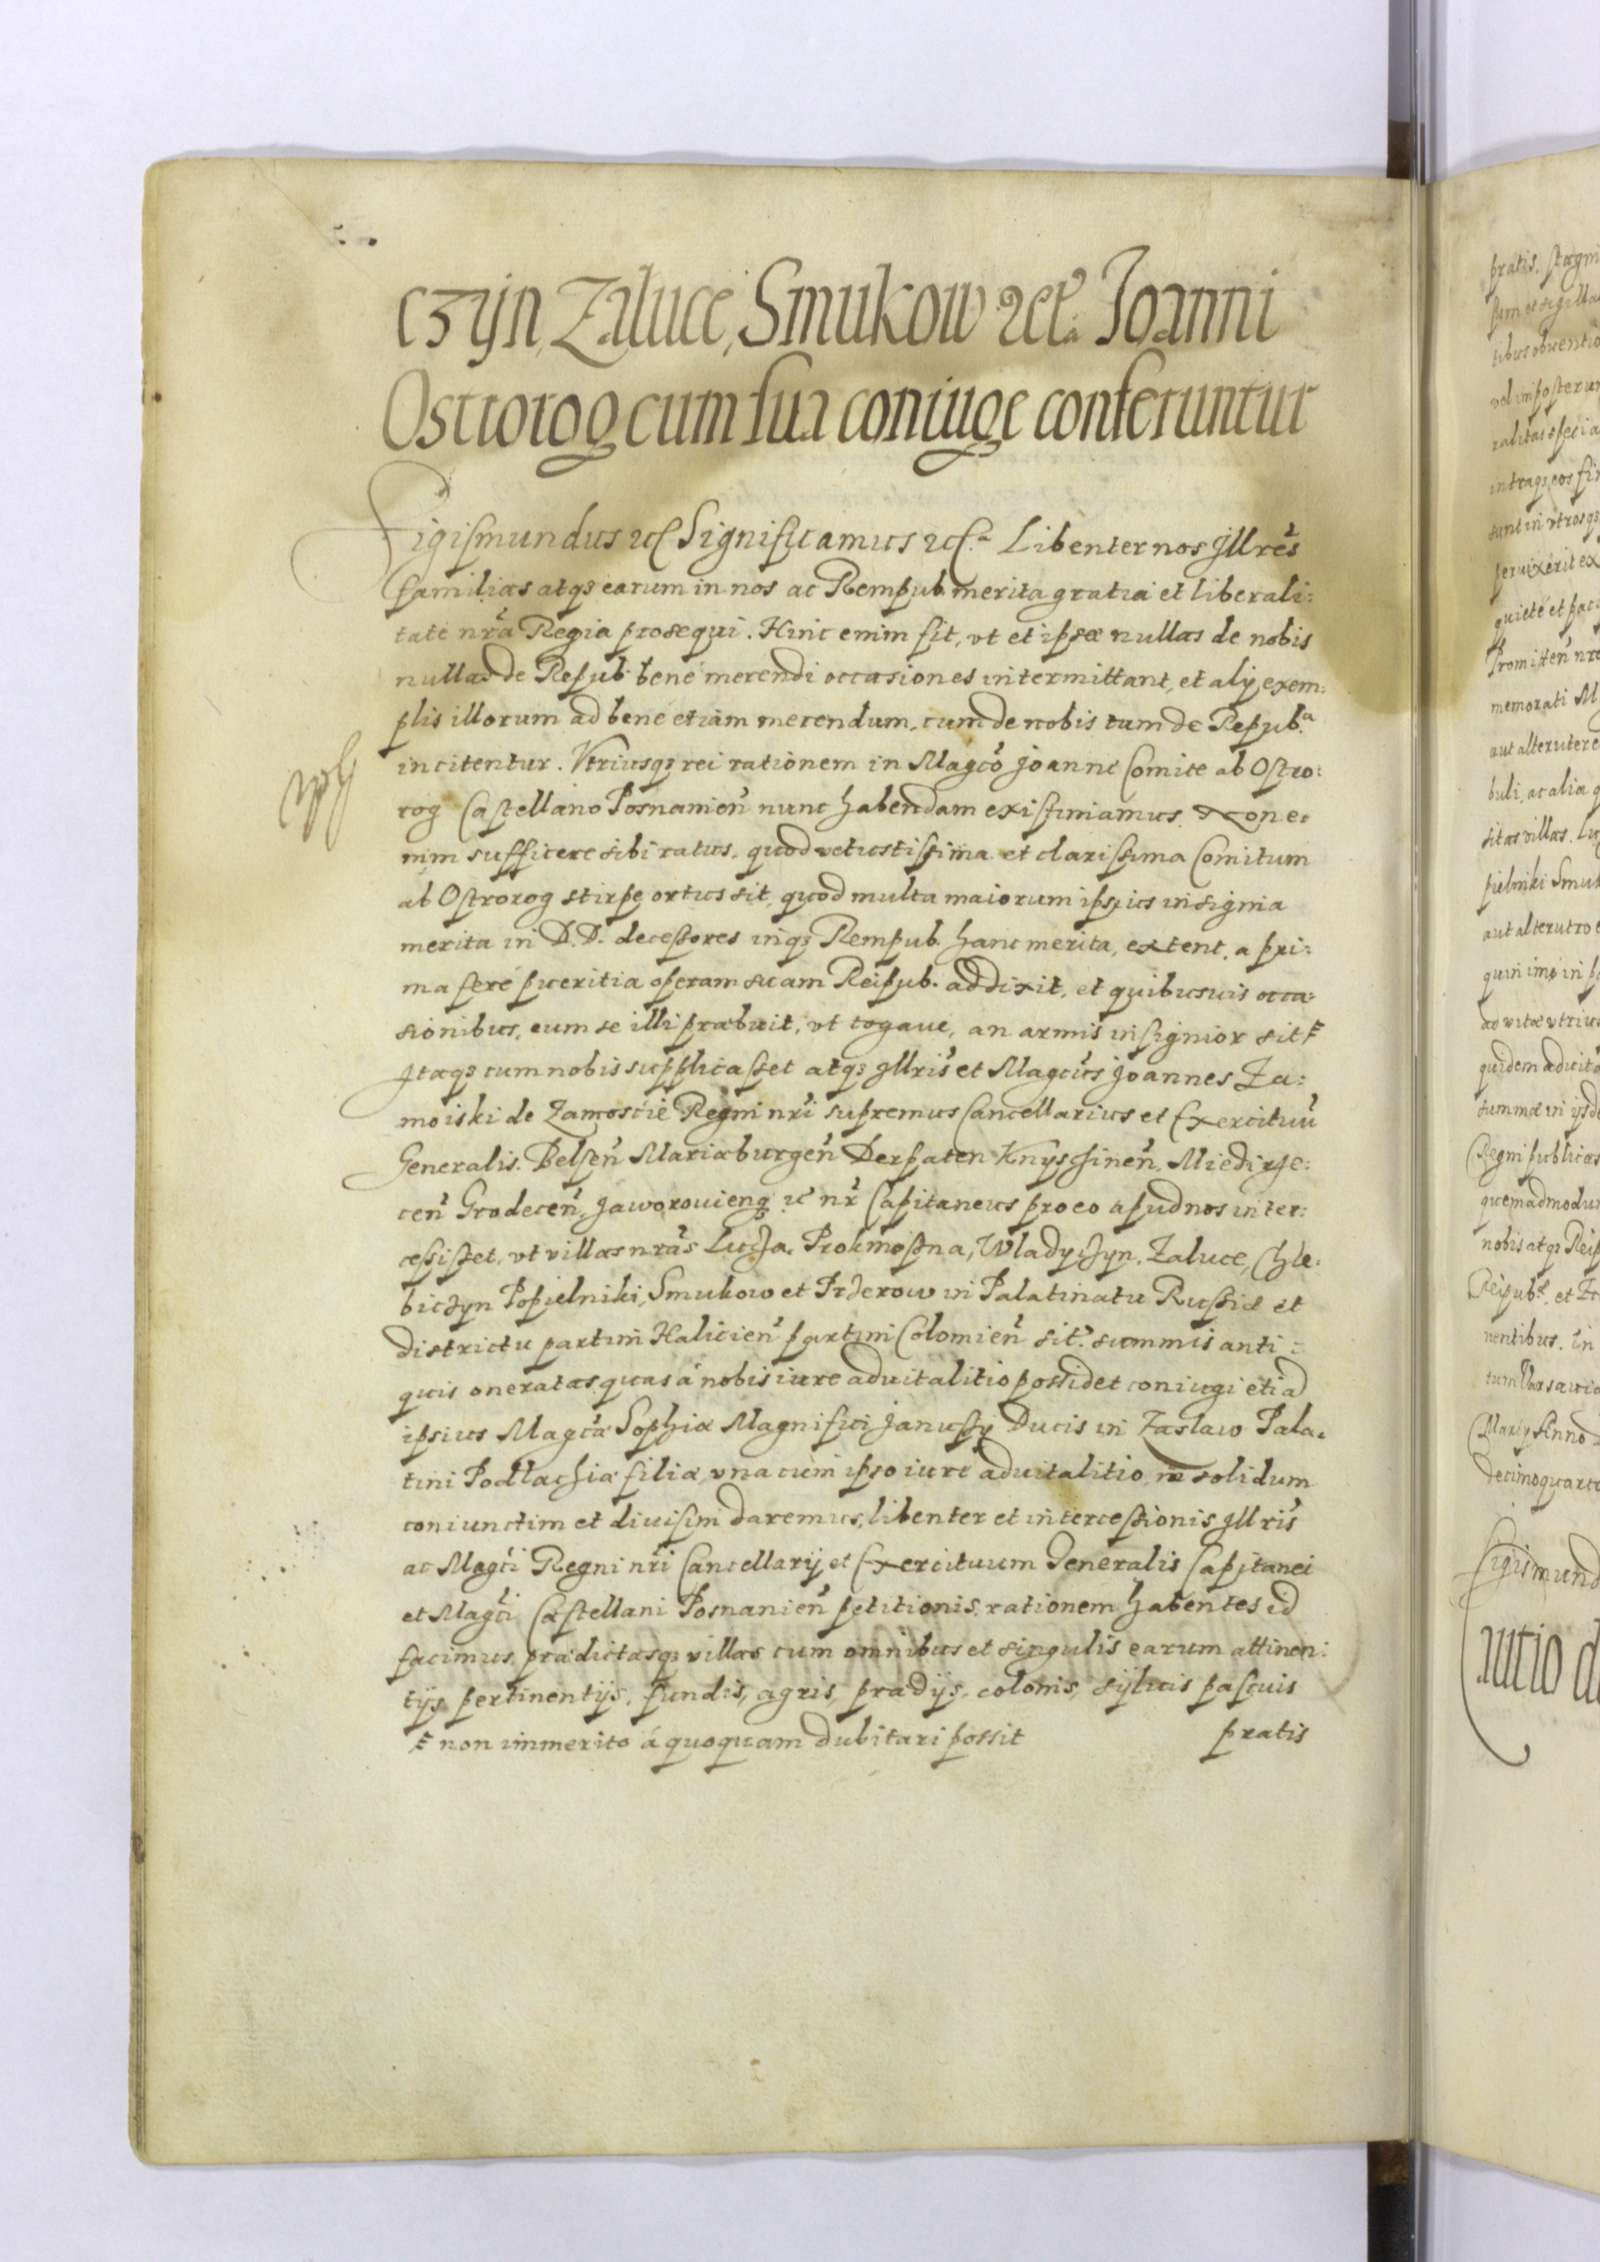 czyn, Zaluce, Smukow etc. Joanni
Ostrorog cum sua coniuge conferuntur
Sigismundus etc. Significamus etc.a Libenter nos Jllrēs
familias atqꝫ earum in nos ac Rempub. merita gratia et liberali:
tate nr̄a Regia prosequi. Hinc enim fit, vt et ipsæ nullas de nobis
nullas de Repub. bene merendi occasiones intermittant, et alij exem:
plis illorum ad bene etiam merendum, cum de nobis tum de Repub.a
incitentur. Vtriusqꝫ rei rationem in Magco Joanne Comite ab Ostro:
rog Castellano Posnanien̄ nunc habendam existimamus. Non e:
nim sufficere sibi ratus, quod vetustissima et clarissima Comitum
ab Ostrorog stirpe ortus sit, quod multa maiorum ipsius insignia
merita in D.D. decessores inqꝫ Rempub. hanc merita, extent, a pri:
ma fere pueritia operam suam Reipub. addixit, et quibusuis occa:
sionibus, eum se illi præbuit, vt togaue, an armis insignior sit
Jtaqꝫ cum nobis supplicasset atqꝫ Jllris et Magcus Joannes Za:
moiski de Zamoscie Regni nr̄i supremus Cancellarius et Exercituū
Generalis. Belsen̄ Mariæburgen̄ Derpaten Knyschinen̄, Miedirze:
cen̄ Grodecen̄, Jaworouienqꝫ etc nr̄ Capitaneus pro eo apud nos inter:
cessisset, vt villas nr̄as Lucza, Prokmosna, Wladyczyn, Zaluce, Chle:
biczyn Popielniki, Smukow et Przerow in Palatinatu Russiæ et
districtu partim Halicien̄ partim Colomien̄ sit. summis anti:
quis oneratas quas á nobis iure aduitalitio possidet coniugi etiā
ipsius Magcæ Sophiæ Magnifici Janussy Ducis in Zaslaw Pala:
tini Podlachiæ filiæ, vna cum ipso iure aduitalitio in solidum
coniunctim et diuisim daremus, libenter et intercessionis Jllris
ac Magci Regni nr̄i Cancellarij et Exercituum Generalis Capitanei
et Magci Castellani Posnanien̄ petitionis, rationem habentes id
facimus, prædictasqꝫ villas cum omnibus et singulis earum attinen:
tijs pertinentijs, fundis, agris, prædijs, colonis, syluis pascuis
non immerito á quoquam dubitari possit
pratis